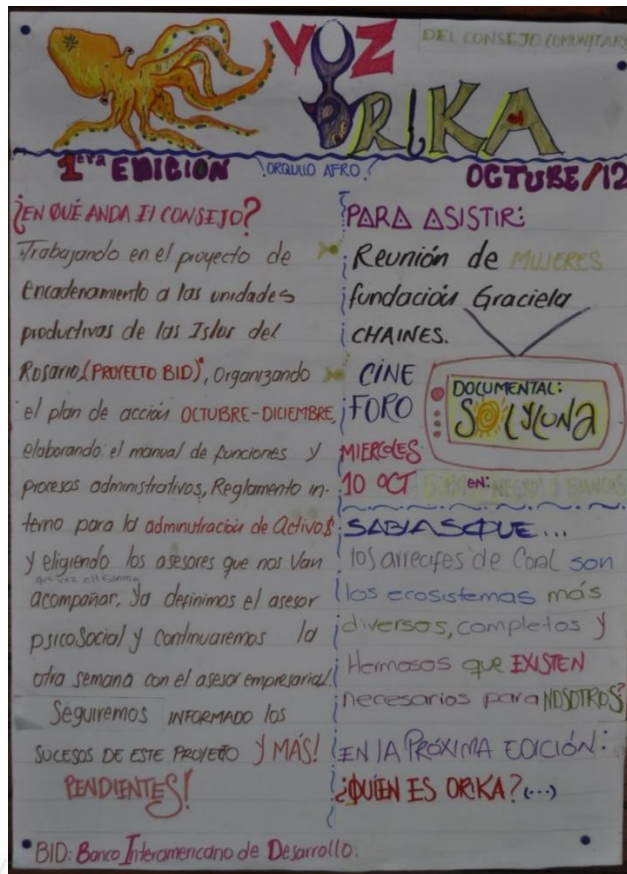 VOZ
DEL CONSEJO COMUNITARI
ORIKA
1era EDICION
ORGULLO AFRO.
OCTUBRE/12
¿EN QUÉ ANDA El CONSEJO?
Trabajando en el proyecto de
encadenamiento a las unidades
productivas de las Islas del
Rosario, (PROYECTO BID)*, Organizando
el plan de acción OCTUBRE-DICIEMBRE,
elaborando el manual de funciones y
procesos administrativos, Reglamento in-
terno para la administración de Activos
y eligiendo los asesores que nos Van
acompañar. Ya definimos el asesor
psicosocial y Continuaremos la
otra semana con el asesor empresarial.
Seguiremos INFORMADO los
SUCESOS DE ESTE PROYETO Y MÁS!
PENDIENTES!
PARA ASISTIR:
Reunión de MUJERES
fundación Graciela
CHAINES.
CINE
FORO
MIERCOLES
10 OCT
DOCUMENTAL:
SOL Y LUNA
en:
SABIAS QUE...
los arrecifes de Coral son
los ecosistemas más
diversos, completos y
Hermosos que EXISTEN
necesarios para NOSOTROS?
EN lA PRÓXIMA EDICIÓN:
¿QUIEN ES ORIKA? (...)
*BID: Banco Interamericano de Desarrollo.